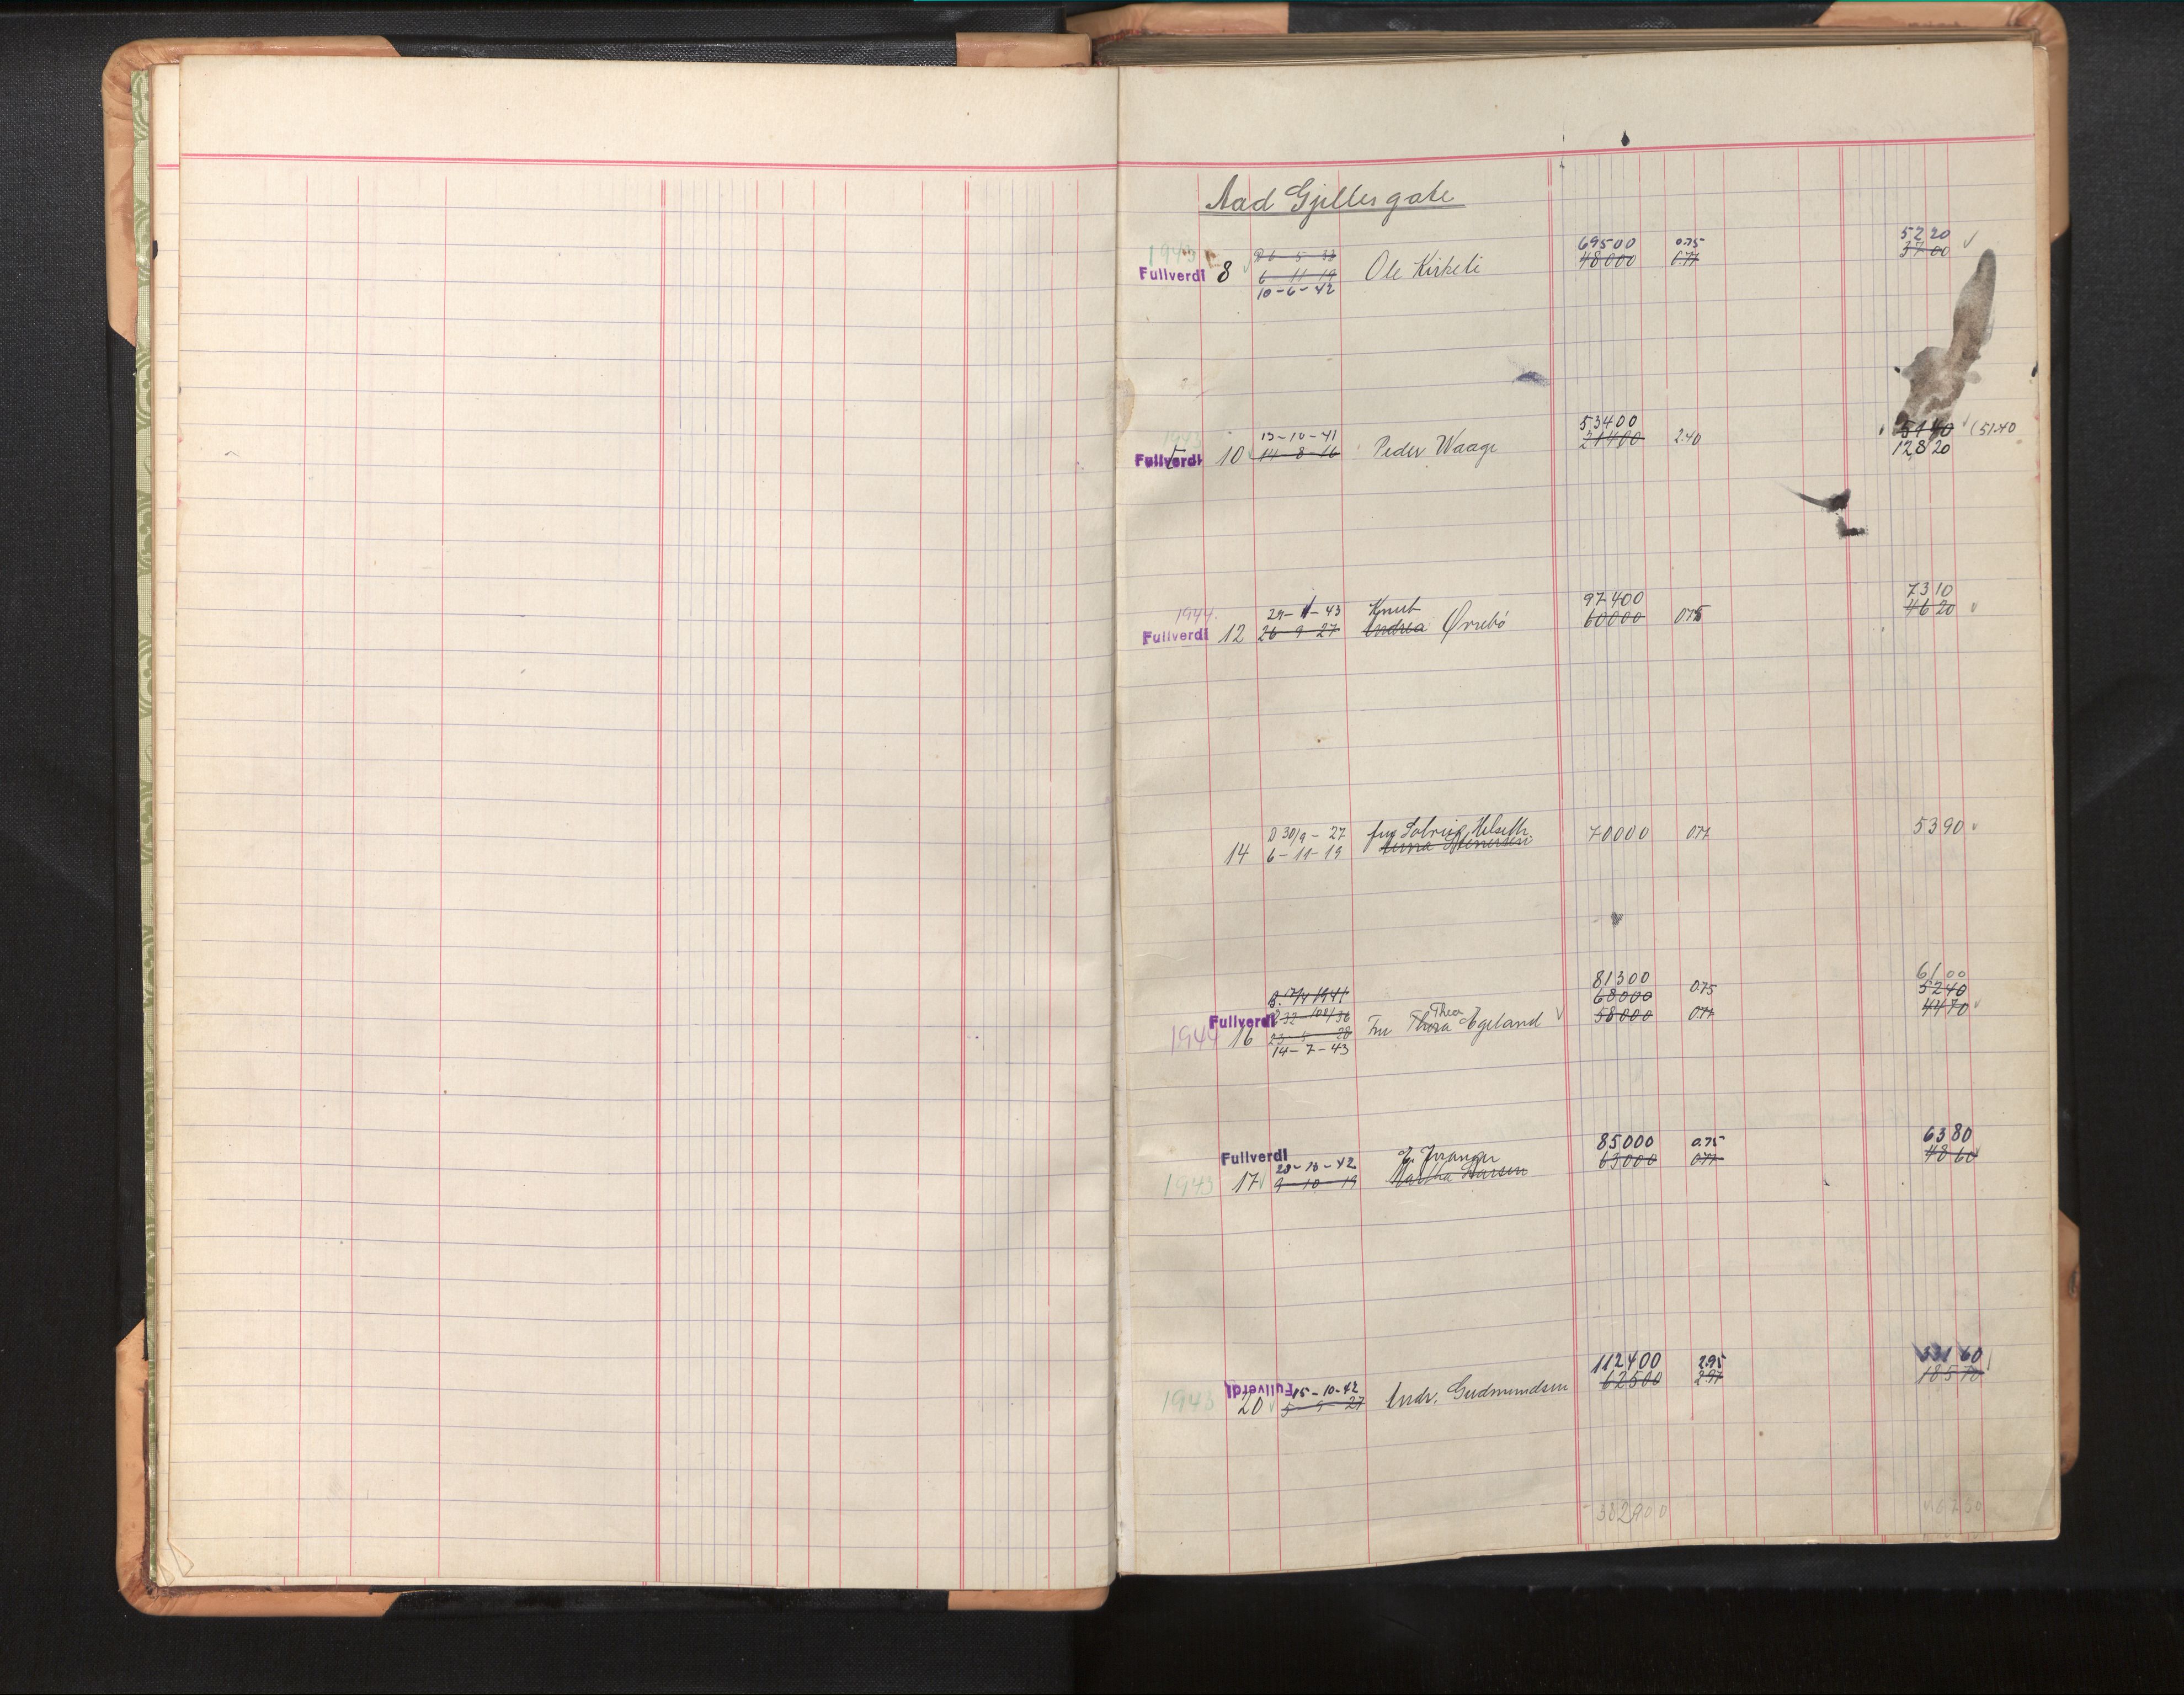 Aad Gjellesgate
1943 D 6-5-33 69500 0.75 5220
Fullverdi 8 6-11-19 Ole Kirkeli 48000 0.77 3700
10-6-42
1943 13-10-41 53400 5140 (51.40
Fullverdi 10 14-8-16 Peder Waage 21400 2.40 12820
1944. 29-1-43 Knut 97400 7310
Fullverdi 12 26-9-27 Andrea Ørrebö 60000 0.75 4620
D 30/9-27 fru Solveig Helseth 70000 0.77 5390
14 6-11-19 Anna
B. 17/4 1941 81300 6100
Fullverdi 232-108/36 Thea 68000 0.75 5240
1944 16 23-5-28 Fru Thora Egeland 58000 0.77 4470
14-7-43
Fullverdi 28-10-42 85000 0.75 6380
1943 17 9-10-19 Martha Larsen 63000 0.77 4860
Fullverdi 15-10-42 112400 2.95 33160
1943 20 5-9-27 Andr. Gudmundsen 62500 2.97 18570
382900